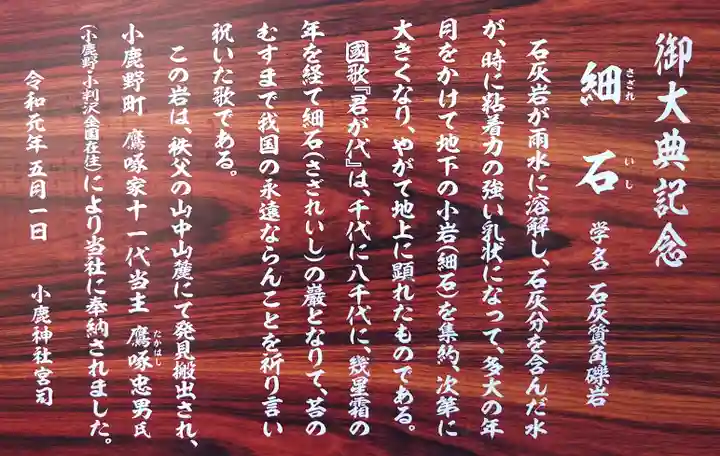 御大典記念
細石 学名 石灰質角礫岩
さざれ いし
石灰岩が雨水に溶解し、石灰分を含んだ水
が、時に粘着力の強い乳状になって、多大の年
月をかけて地下の小岩(細石)を集約、次第に
大きくなり、やがて地上に顕れたものである。
國歌『君が代』は、千代に八千代に、幾星霜の
年を経て細石(さざれいし)の巌となりて、苔の
むすまで我国の永遠ならんことを祈り言い
祝いた歌である。
この岩は、秩父の山中山麓にて発見搬出され、
小鹿野町 鷹啄家十一代当主 鷹啄忠男氏
たかはし
(小鹿野・小判沢全園在住)により当社に奉納されました。
令和元年五月一日 小鹿神社宮司